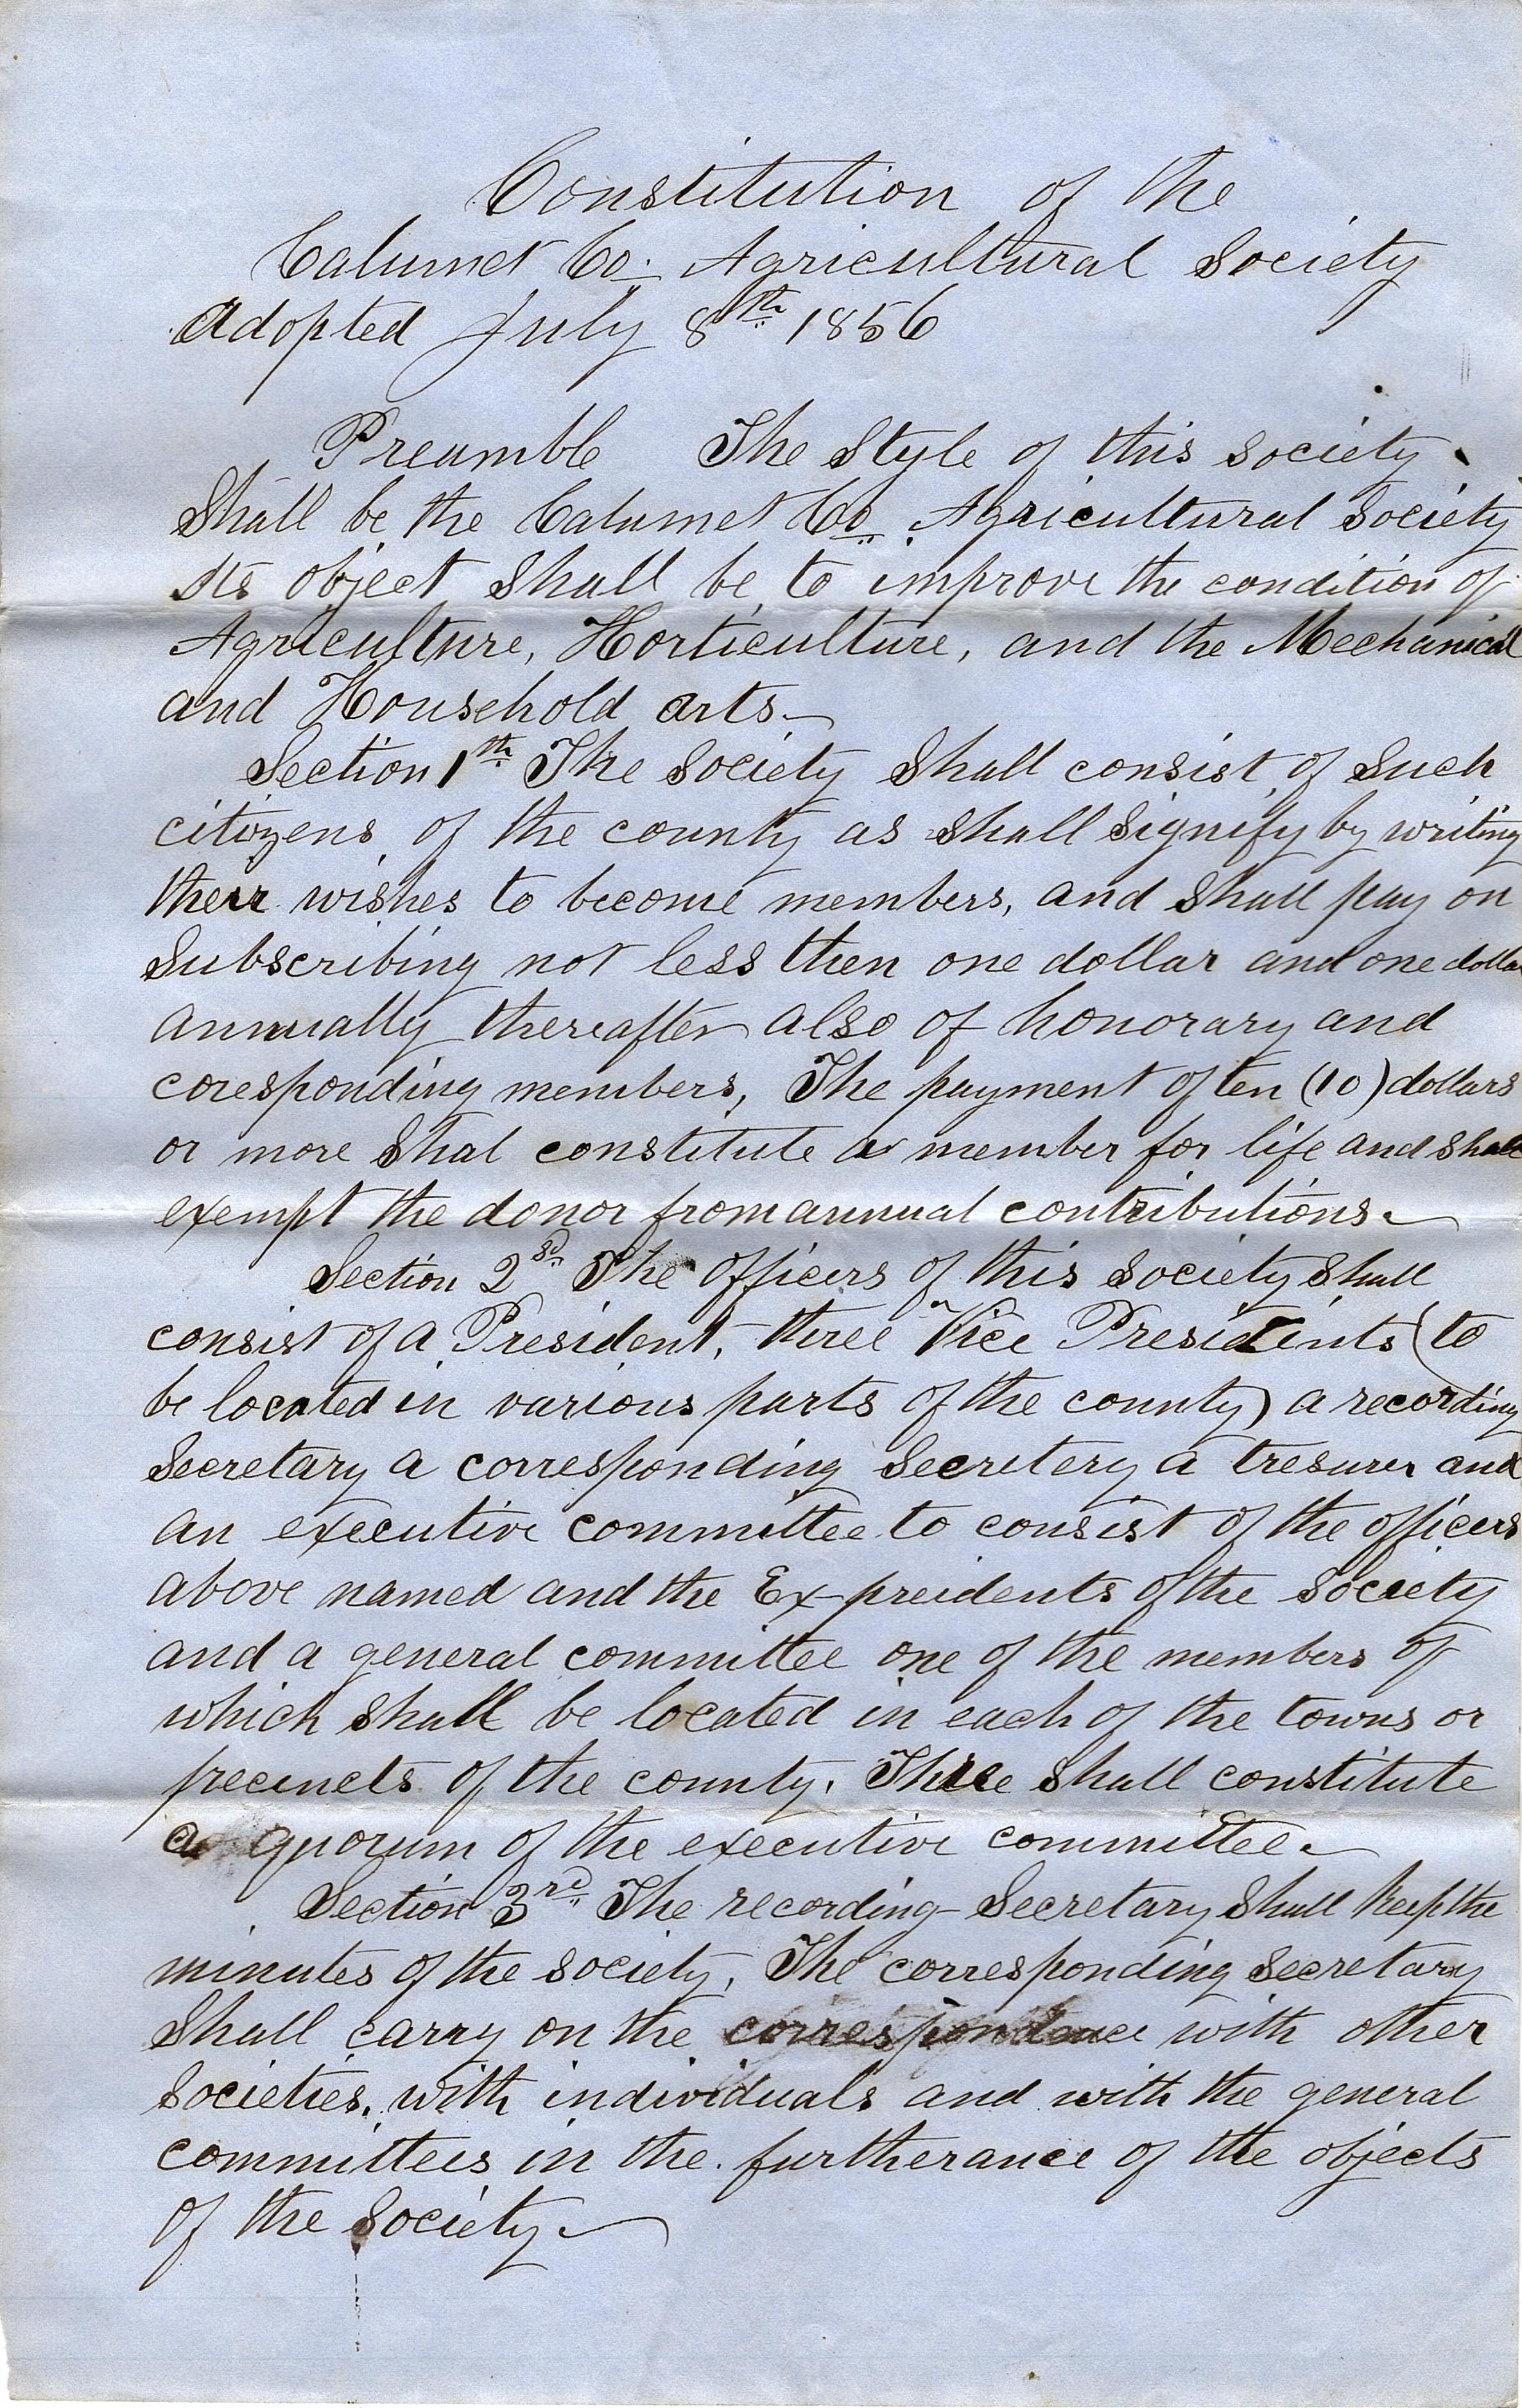 Constitution of the
Calumet Co. Agricultural Society
Adopted July 8th 1856
Preamble The Style of this society
Shall be the Calumet Co. Agricultural Society
Its object Shall be to improve the condition of
Agriculture, Horticulture, and the Mechanical
and Household arts.
Section 1th The Society Shall consist of Such
citizens of the county as shall Signify by writing
their wishes to become members, and Shall pay on
Subscribing not less then one dollar and one dollar
annually thereafter also of honorary and
coresponding members, The payment of ten (10) dollars
or more Shal constitute a member for life and Shall
exempt the donor from annual contributions.
Section 2sd The Officers of this Society Shall
consist of a President, three Vice Presidents (to
be located in various parts of the county) a recording
Secretary a corresponding Secretery a tresurer and
an executive committee to consist of the officers
above named and the Ex-preidents of the Society
and a general committee one of the members of
which shall be located in each of the towns or
precincts of the county. Three Shall constitute
a quorum of the executive committee.
Section 3rd The recording Secretary Shall Keep the
minutes of the society, The corresponding Secretary
Shall carry on the correspondence with other
Societies, with individuals and with the general
committees in the furtherance of the objects
of the Society.